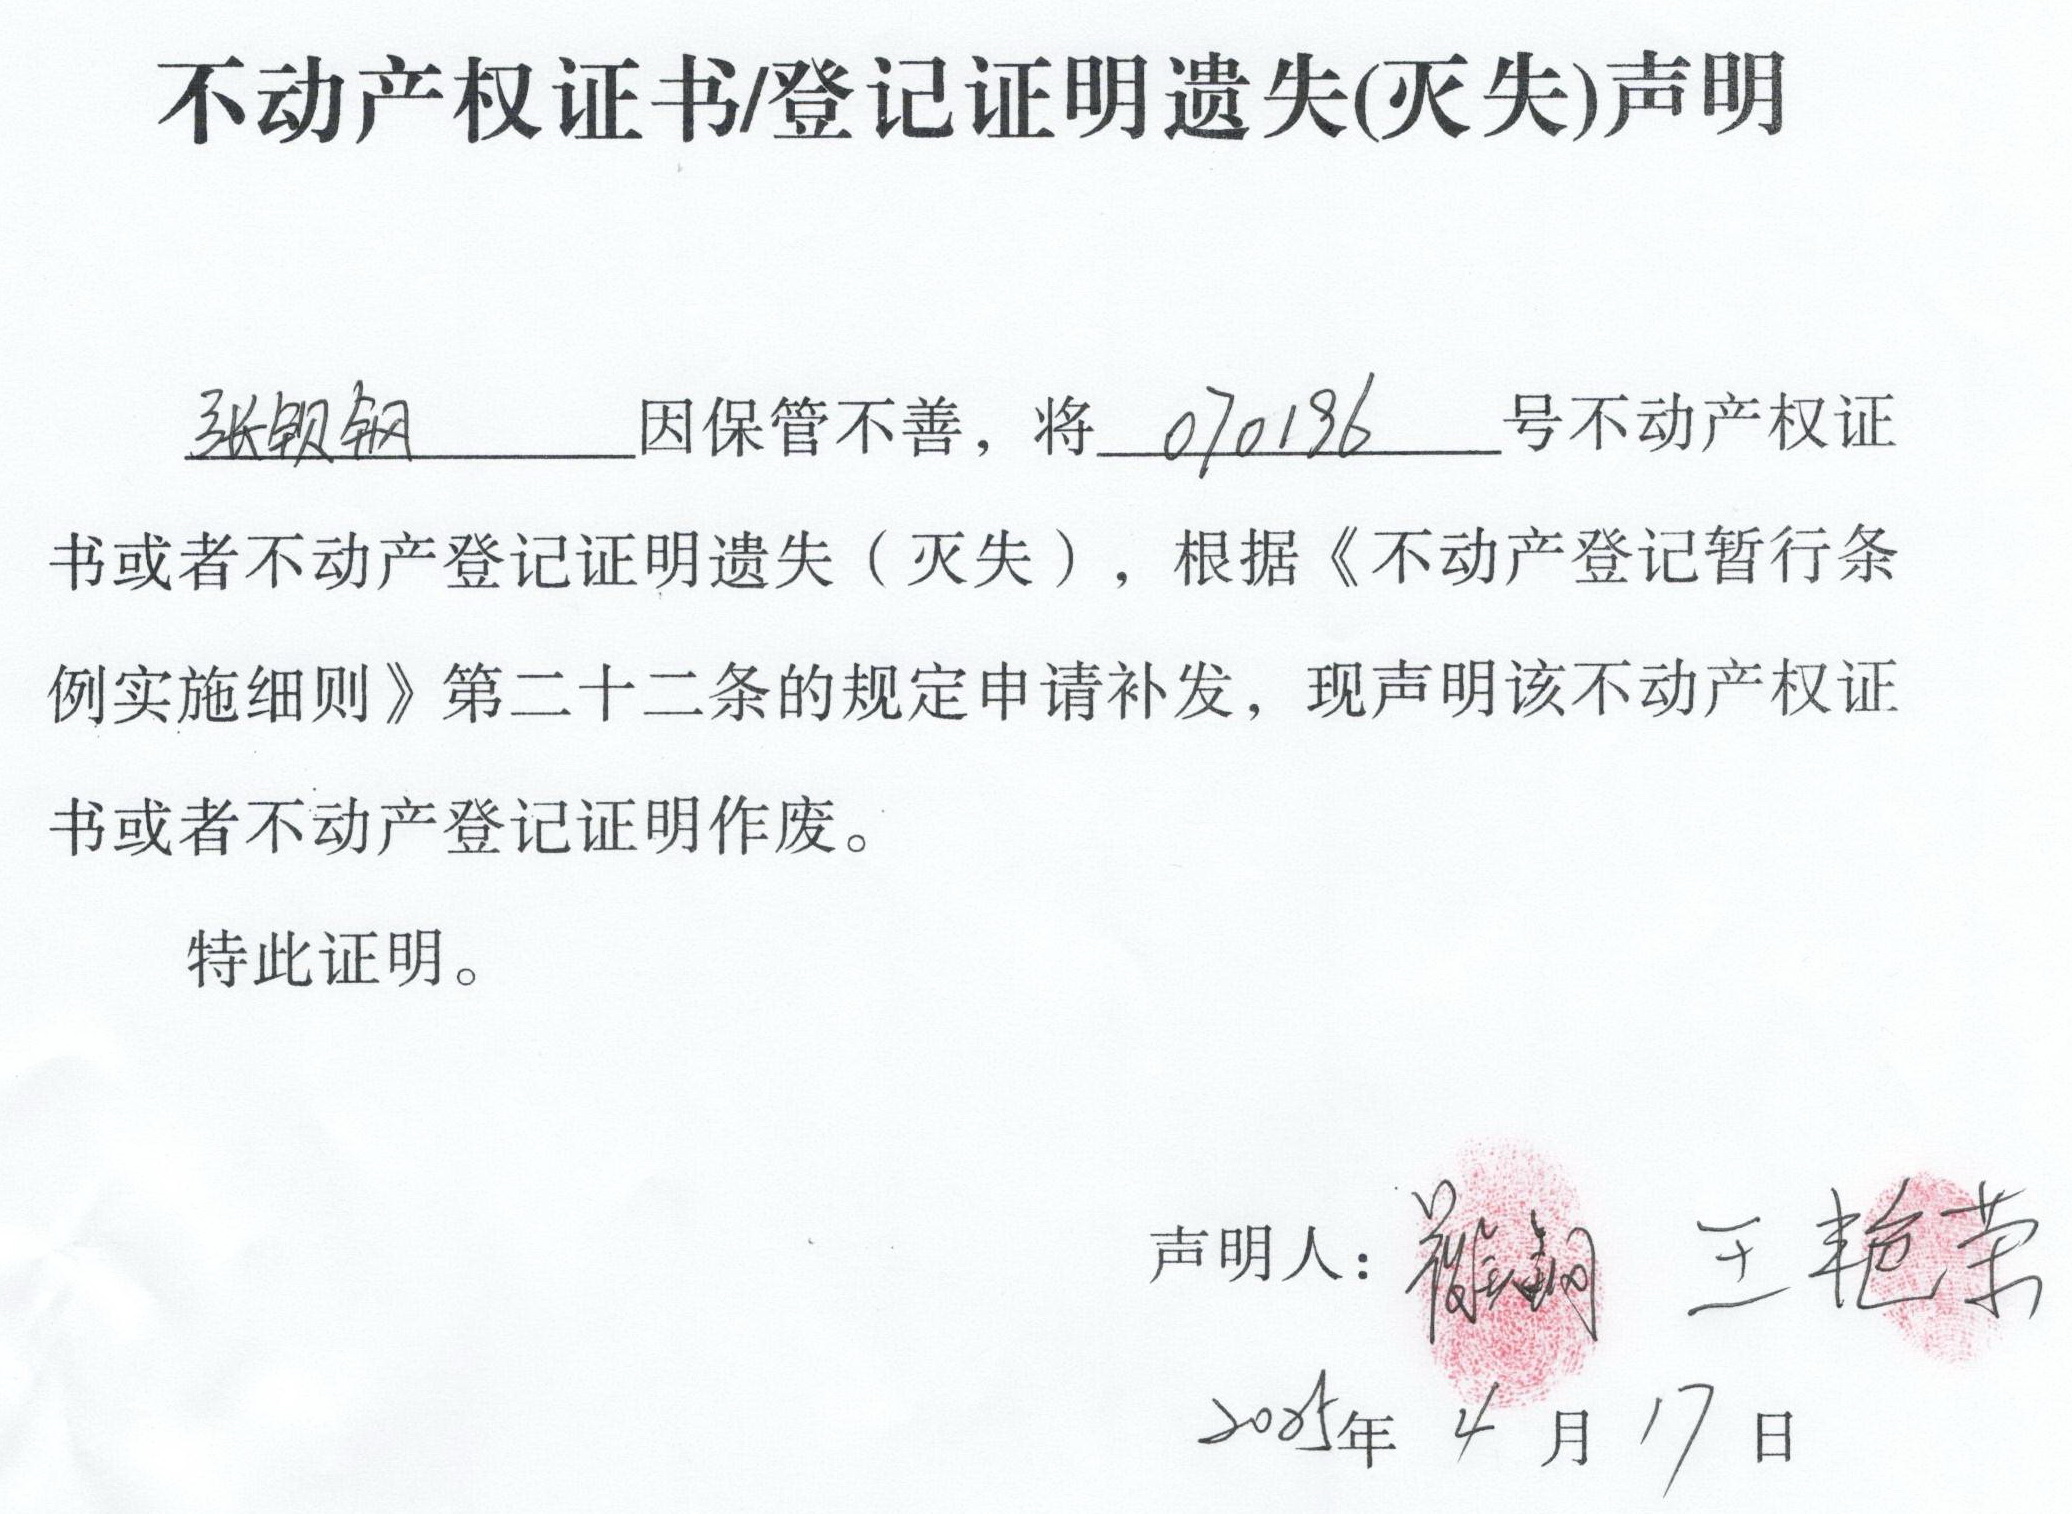 不动产权证书/登记证明遗失(灭失)声明
张钡钢因保管不善，将070196号不动产权证
书或者不动产登记证明遗失（灭失），根据《不动产登记暂行条
例实施细则》第二十二条的规定申请补发，现声明该不动产权证
书或者不动产登记证明作废。
特此证明。
声明人： 王艳荣
2025年 4 月 17 日